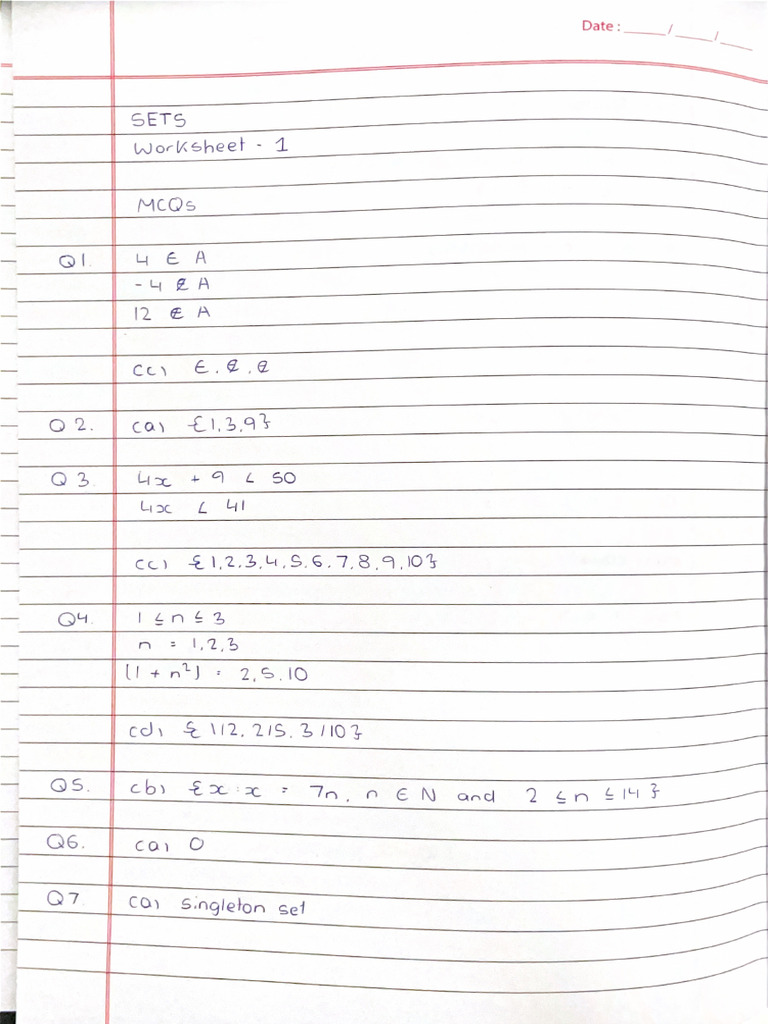 Date : ____ / ____ / ____
SETS
Worksheet - 1
MCQs
Q1. 4 ∈ A
-4 ∉ A
12 ∉ A
(c) ∈, ∉, ∉
Q 2. (a) {1,3,9}
Q 3. 4x + 9 < 50
4x < 41
(c) {1,2,3,4,5,6,7,8,9,10}
Q4. 1 ≤ n ≤ 3
n = 1,2,3
(1 + n²) = 2,5,10
(d) {1/2, 2/5, 3/10}
Q5. (b) {x:x = 7n, n ∈ N and 2 ≤ n ≤ 14}
Q6. (a) 0
Q7 (a) singleton set